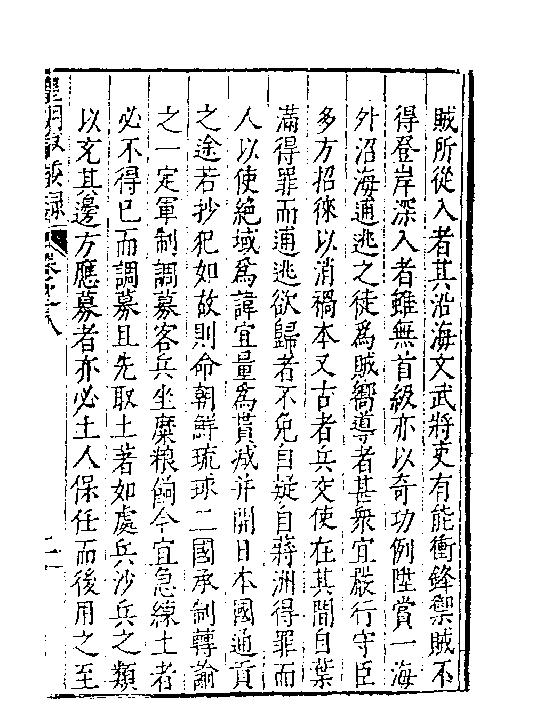 賊所從入者其沿海文武將吏有能衝鋒禦賊不
得登岸深入者雖無首級亦以奇功例陞賞一海
外沿海逋逃之徒為賊嚮導者甚衆宜嚴行守臣
多方招徠以消禍本又古者兵交使在其間自葉
滿得罪而逋逃欲歸者不免自疑自蔣洲得罪而
人以使絶域為諱宜量為貰减并開日本國通貢
之途若抄犯如故則命朝鮮琉球二國承制轉諭
之一定軍制調募客兵坐糜粮餉今宜急練土者
必不得已而調募且先取土著如處兵沙兵之類
以充其邊方應募者亦必土人保任而後用之至